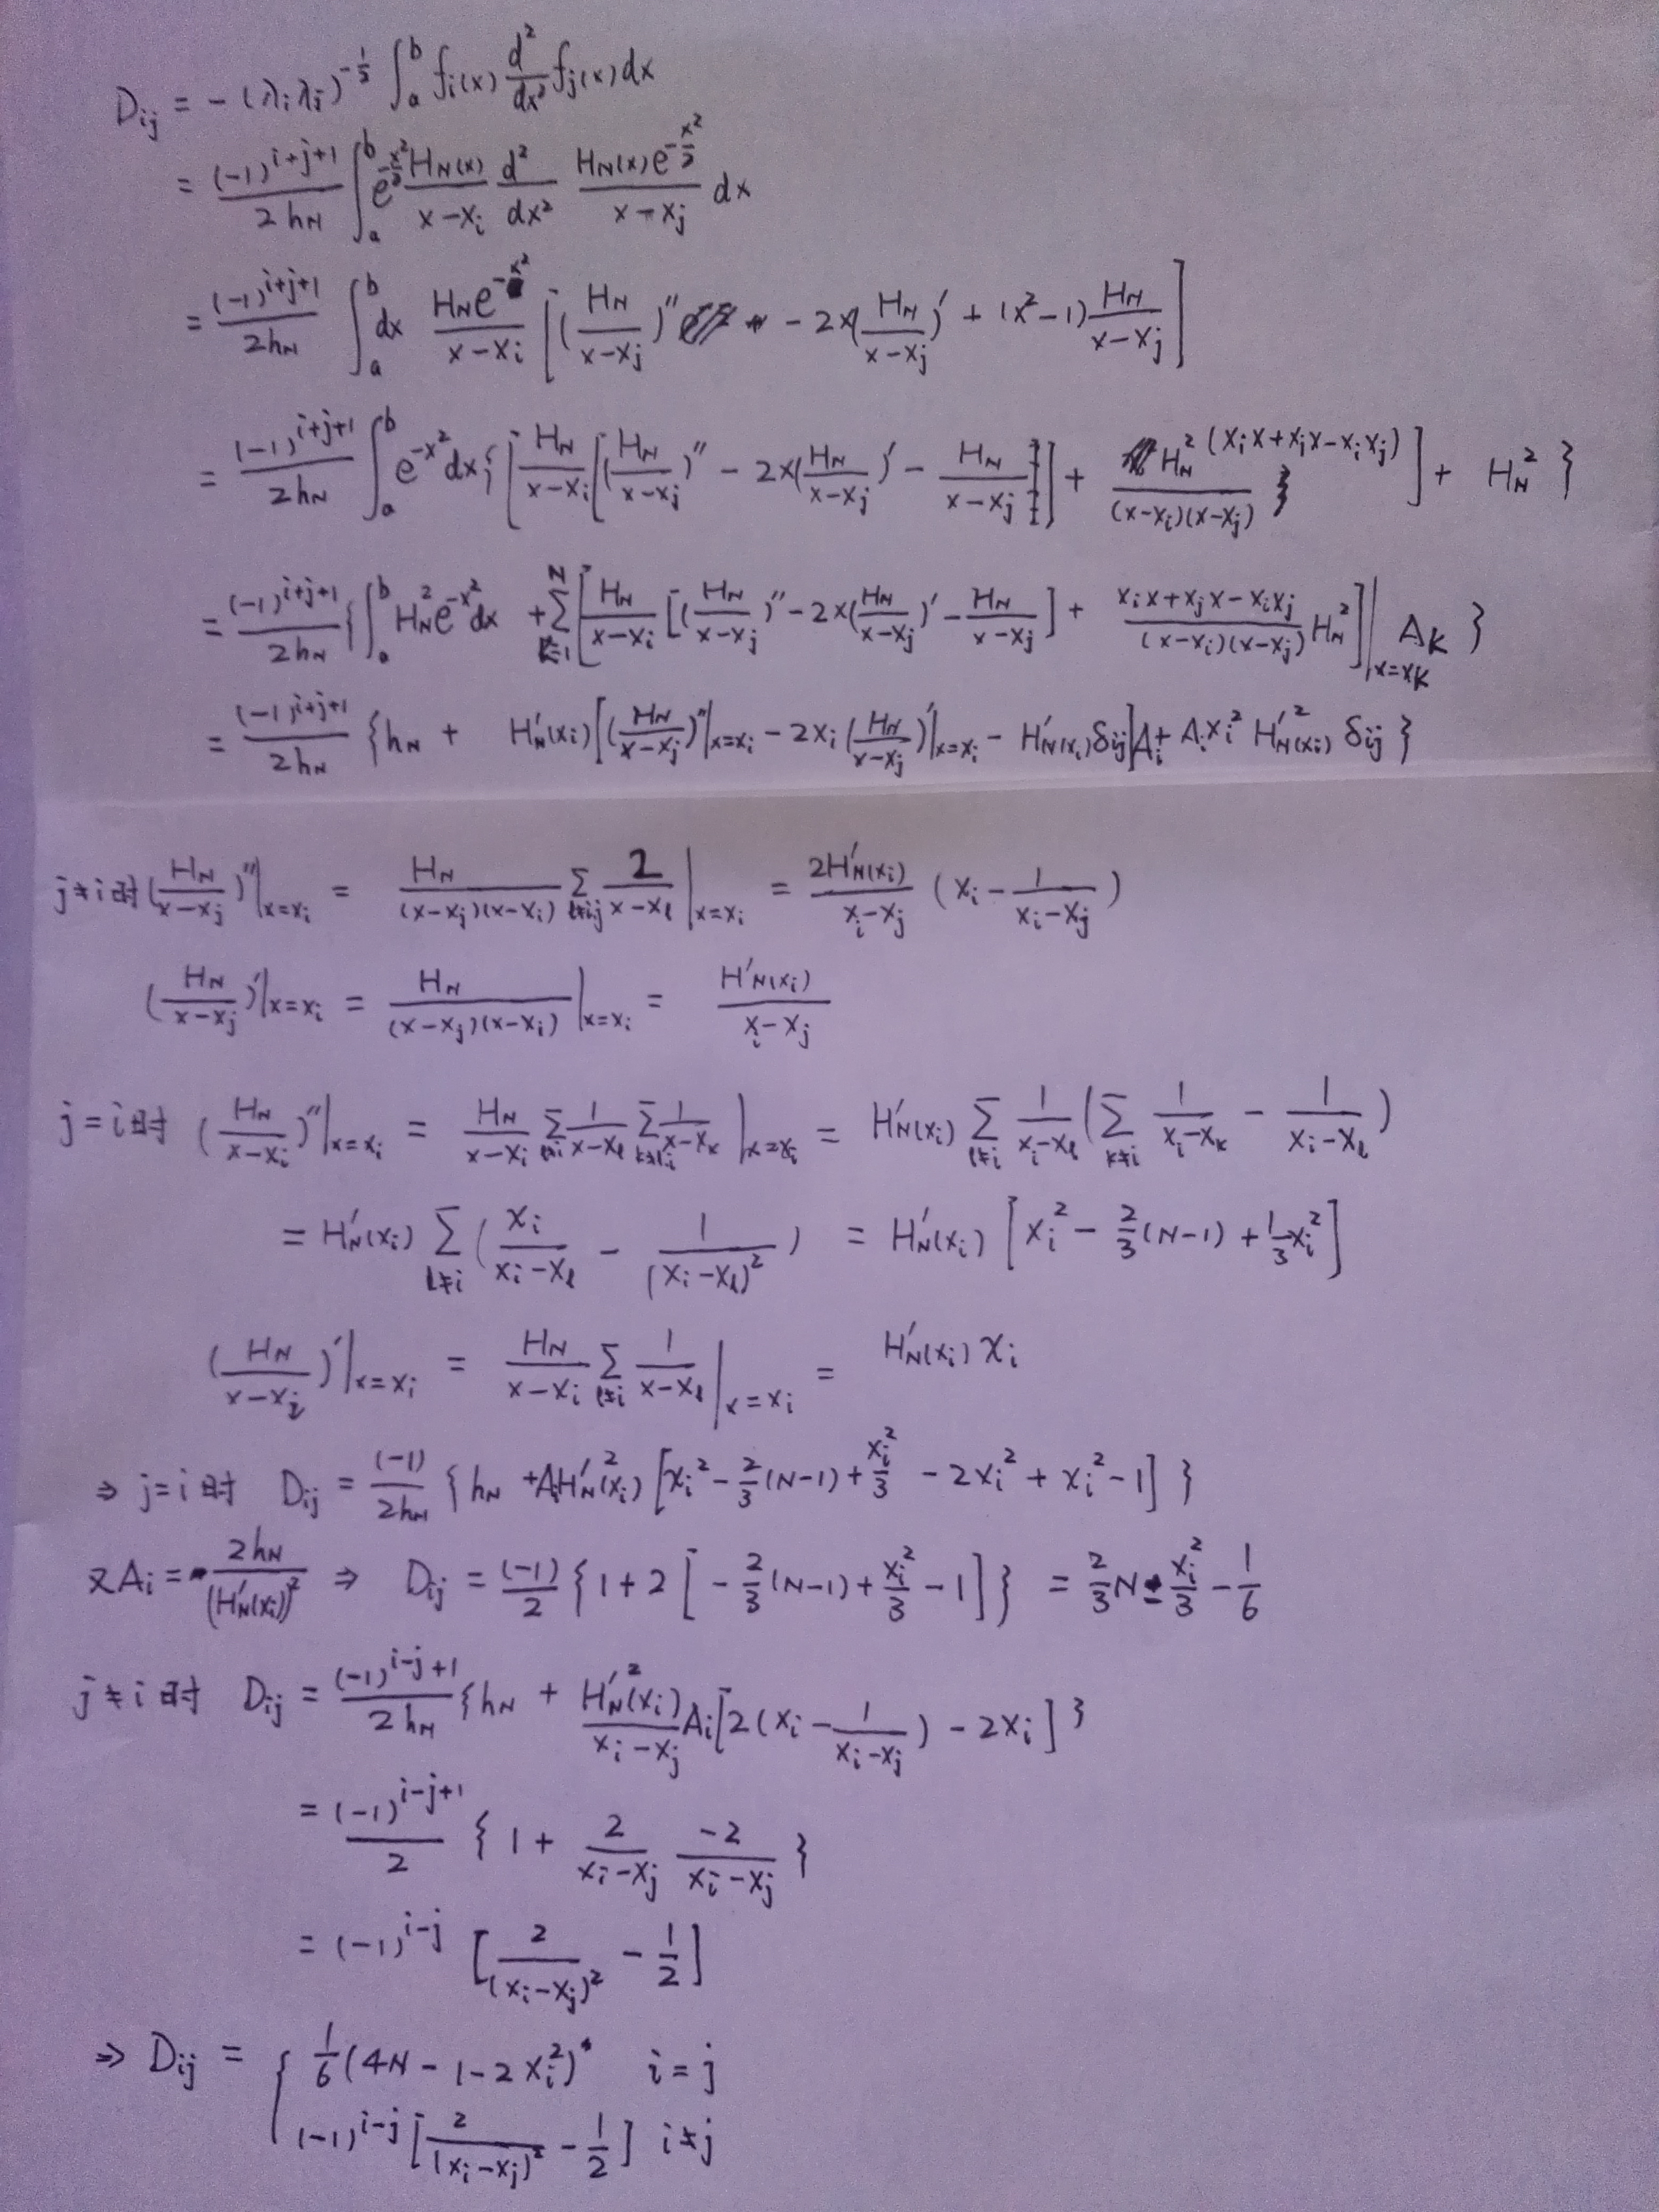 D_{ij} = -(λ_i λ_j)^{-\frac{1}{2}} ∫_a^b f_i(x) \frac{d^2}{dx^2} f_j(x) dx
= \frac{(-1)^{i+j+1}}{2h_N} ∫_a^b e^{-\frac{x^2}{2}} \frac{H_N(x)}{x-x_i} \frac{d^2}{dx^2} \frac{H_N(x) e^{-\frac{x^2}{2}}}{x-x_j} dx
= \frac{(-1)^{i+j+1}}{2h_N} ∫_a^b dx \frac{H_N e^{-x^2}}{x-x_i} [(\frac{H_N}{x-x_j})'' - 2x(\frac{H_N}{x-x_j})' + (x^2-1)\frac{H_N}{x-x_j}]
= \frac{(-1)^{i+j+1}}{2h_N} ∫_a^b e^{-x^2} dx {[\frac{H_N}{x-x_i}[(\frac{H_N}{x-x_j})'' - 2x(\frac{H_N}{x-x_j})' - \frac{H_N}{x-x_j}] + \frac{H_N^2 (x_i x + x_j x - x_i x_j)}{(x-x_i)(x-x_j)}] + H_N^2}
= \frac{(-1)^{i+j+1}}{2h_N} {∫_a^b H_N^2 e^{-x^2} dx + \sum_{k=1}^N [\frac{H_N}{x-x_i} [(\frac{H_N}{x-x_j})'' - 2x(\frac{H_N}{x-x_j})' - \frac{H_N}{x-x_j}] + \frac{x_i x + x_j x - x_i x_j}{(x-x_i)(x-x_j)} H_N^2]|_{x=x_k} A_k}
= \frac{(-1)^{i+j+1}}{2h_N} {h_N + H_N'(x_i)[(\frac{H_N}{x-x_j})''|_{x=x_i} - 2x_i(\frac{H_N}{x-x_j})'|_{x=x_i} - H_N'(x_i) δ_{ij}]A_i + A_i x_i^2 H_N'^2(x_i) δ_{ij}}
j≠i时 (\frac{H_N}{x-x_j})''|_{x=x_i} = \frac{H_N}{(x-x_j)(x-x_i)} \sum_{l≠i,j} \frac{2}{x-x_l}|_{x=x_i} = \frac{2H_N'(x_i)}{x_i-x_j} (x_i - \frac{1}{x_i-x_j})
(\frac{H_N}{x-x_j})'|_{x=x_i} = \frac{H_N}{(x-x_j)(x-x_i)}|_{x=x_i} = \frac{H_N'(x_i)}{x_i-x_j}
j=i时 (\frac{H_N}{x-x_i})''|_{x=x_i} = \frac{H_N}{x-x_i} \sum_{l≠i} \frac{1}{x-x_l} \sum_{k≠l,i} \frac{1}{x-x_k}|_{x=x_i} = H_N'(x_i) \sum_{l≠i} \frac{1}{x_i-x_l} (\sum_{k≠i} \frac{1}{x_i-x_k} - \frac{1}{x_i-x_l})
= H_N'(x_i) \sum_{l≠i} (\frac{x_i}{x_i-x_l} - \frac{1}{(x_i-x_l)^2}) = H_N'(x_i) [x_i^2 - \frac{2}{3}(N-1) + \frac{1}{3}x_i^2]
(\frac{H_N}{x-x_i})'|_{x=x_i} = \frac{H_N}{x-x_i} \sum_{l≠i} \frac{1}{x-x_l}|_{x=x_i} = H_N'(x_i) x_i
⇒ j=i时 D_{ij} = \frac{(-1)}{2h_N} {h_N + A_i H_N'^2(x_i) [x_i^2 - \frac{2}{3}(N-1) + \frac{x_i^2}{3} - 2x_i^2 + x_i^2 - 1]}
又A_i = \frac{2h_N}{(H_N'(x_i))^2} ⇒ D_{ij} = \frac{(-1)}{2} {1 + 2[-\frac{2}{3}(N-1) + \frac{x_i^2}{3} - 1]} = \frac{2}{3}N - \frac{x_i^2}{3} - \frac{1}{6}
j≠i时 D_{ij} = \frac{(-1)^{i-j+1}}{2h_N} {h_N + \frac{H_N'^2(x_i)}{x_i-x_j} A_i [2(x_i - \frac{1}{x_i-x_j}) - 2x_i]}
= \frac{(-1)^{i-j+1}}{2} {1 + \frac{2}{x_i-x_j} \frac{-2}{x_i-x_j}}
= (-1)^{i-j} [\frac{2}{(x_i-x_j)^2} - \frac{1}{2}]
⇒ D_{ij} = { \frac{1}{6}(4N-1-2x_i^2) i=j
(-1)^{i-j} [\frac{2}{(x_i-x_j)^2} - \frac{1}{2}] i≠j